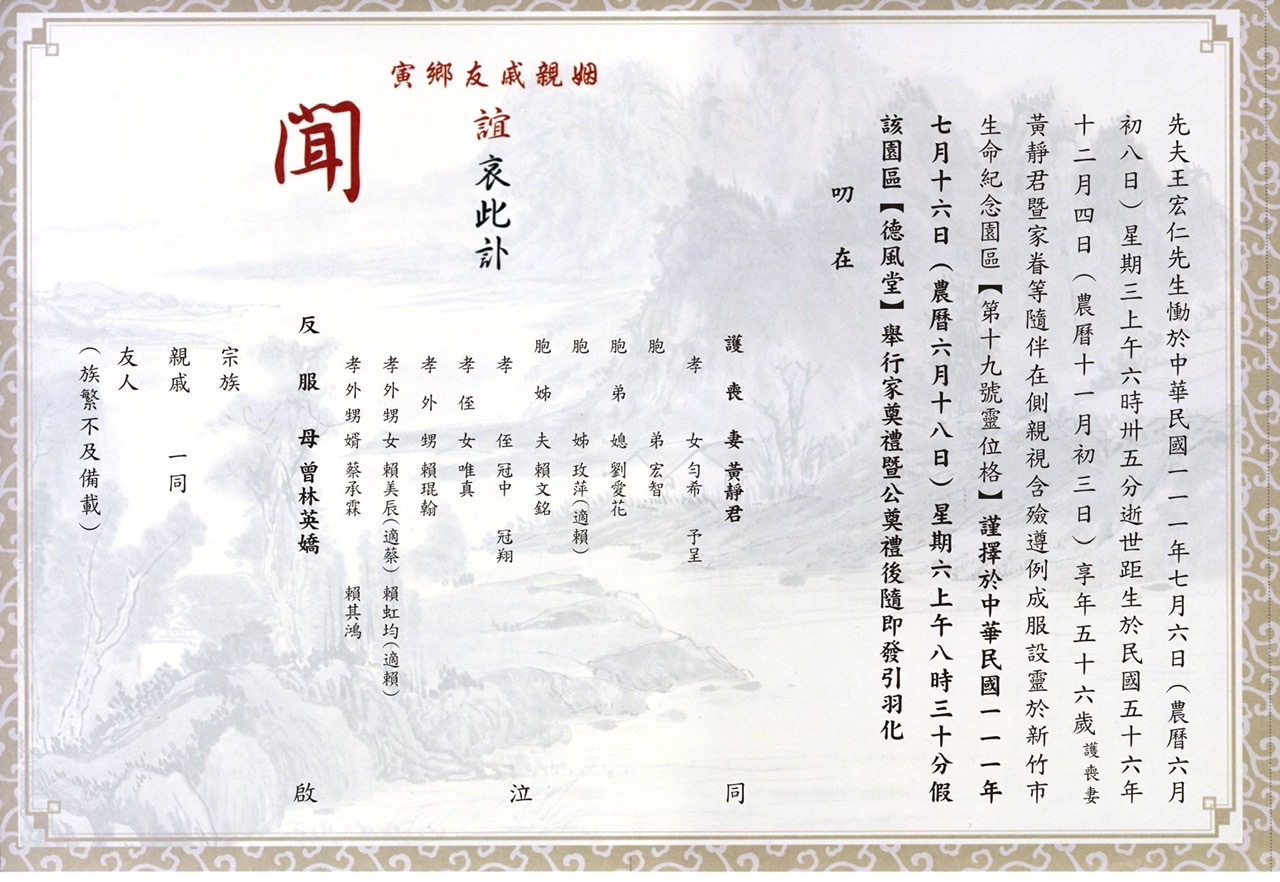 先夫王宏仁先生慟於中華民國一一一年七月六日（農曆六月
初八日）星期三上午六時卅五分逝世距生於民國五十六年
十二月四日（農曆十一月初三日）享年五十六歲護喪妻
黃靜君暨家眷等隨伴在側親視含殮遵例成服設靈於新竹市
生命紀念園區【第十九號靈位格】謹擇於中華民國一一一年
七月十六日（農曆六月十八日）星期六上午八時三十分假
該園區【德風堂】舉行家奠禮暨公奠禮後隨即發引羽化
叨在
姻親戚友鄉寅
誼哀此訃
聞
護喪妻黃靜君
孝女勻希 予呈
胞弟宏智
胞弟媳劉愛花
胞姊玫萍（適賴）
胞姊夫賴文銘
孝侄冠中 冠翔
孝侄女唯真
孝外甥賴琨翰
孝外甥女賴美辰（適蔡）賴虹均（適賴）
孝外甥婿蔡承霖 賴其鴻
反服母曾林英嬌
同泣啟
宗族
親戚 一同
友人
（族繁不及備載）